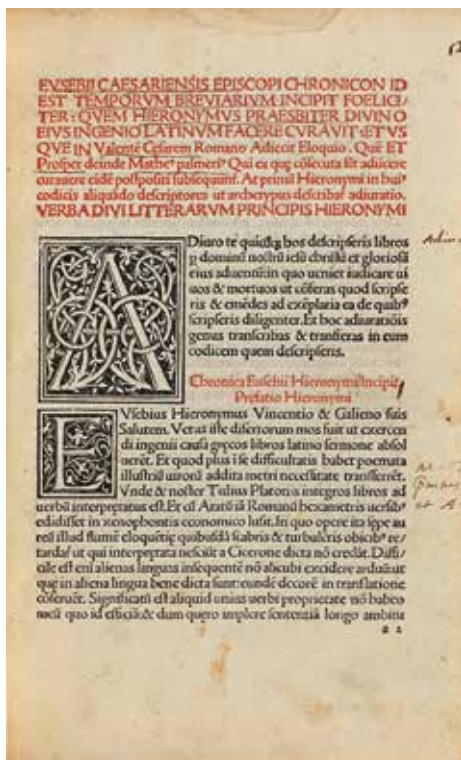 EVSEBII CAESARIENSIS EPISCOPI CHRONICON ID
EST TEMPORVM BREVIARIVM INCIPIT FOELICI/
TER: QVEM HIERONYMVS PRAESBITER DIVINO
EIVS INGENIO LATINVM FACERE CVRAVIT: ET VS
QVE IN Valentē Cesarem Romano Adiecit Eloquio. Quē ET
Prosper deinde Matheꝰ palmeriꝰ Qui ea quę cōsecuta sūt adiicere
curauere eidē postpositi subsequunt. At primū Hieronymi in huiꝰ
codicis aliquādo descriptores ut archetypus describat adiuratio.
VERBA DIVI LITTERARVM PRINCIPIS HIERONYMI
ADiuro te hos descripseris libros
p dominū nostrū iesū christū et gloriosū
eius aduentū: in quo ueniet iudicare ui
uos & mortuos ut cōferas quod scripse
ris & emēdes ad exēplaria ea de quibꝰ
scripseris diligenter. Et hoc adiuratiōis
genus transcribas & transferas in eum
codicem quem descripseris.
Chronica Eusebii Hieronymi Incipit
Prefatio Hieronymi
EVsebius Hieronymus Vincentio & Galieno suis
Salutem. Vetus iste disertorum mos fuit ut exercen
di ingenii causā gręcos libros latino sermone absol
uerēt. Et quod plus ī se difficultatis habet poemata
illustriū uirorū addita metri necessitate transferrēt.
Vnde & noster Tulius Platonis integros libros ad
uerbū interpretatus est. Et cū Aratū iā Romanū hexametris uersibꝰ
edidisset in xenophontis economico lusit. In quo opere ita sępe au
reū illud flumē eloquētię quibusdā scabris & turbulētis obicibꝰ re/
tardat ut qui interpretata nesciūt a Cicerone dicta nō credāt. Diffi/
cile est enī alienas linguas insequentē nō alicubi excidere arduū: ut
quę in aliena lingua bene dicta sunt: eundē decorē in translatione
cōseruēt. Significatū est aliquid unius uerbi proprietate nō habeo
meū quo id efficiā: & dum quero implere sententiā longo ambitu
a 2